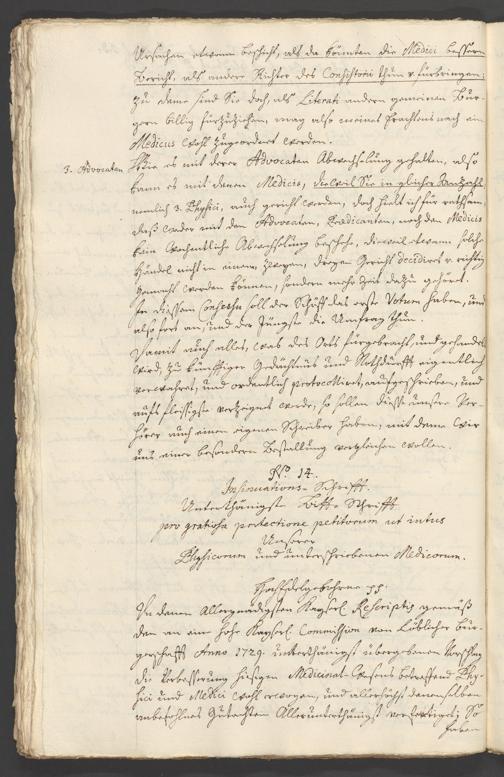 Ursachen etwann beschicht, als da könnten die Medici bessern
Bericht, als andere Richter des Consistorii thun v. fürbringen;
zu deme sind Sie doch, als Literati andern gemeinen Bur-
gern billig fürzuziehen, mag also meines Erachtens noch ein
Medicus wohl zugeordnet werden.
3. Advocaten. Wie es mit deren Advocaten Abwechslung gehalten, also
kann es mit denen Medicis, dieweil Sie in glicher Anzahl
nemlich 3. Physici, auch gericht werden, doch hielt ich für rathsam,
dass weder mit den Advocaten, Prædicanten, noch den Medicis
kein wochentliche Abwechslung beschehe, dieweil etwann solche
Händel nicht in einem, zweyen, dreyen Gericht decidirt v. richtig
gemacht werden können, sondern mehr Zeit dazu gehöret.
In diesem Consessu soll der Schuss das erste Votum haben, und
also fort an, und der Jüngste die Umfrag thun.
Damit auch alles, was des Orts fürgebracht, und gehandelt
wird, zu künfftiger Gedächtnus und Nothdurfft eigentlich
verwahret, und ordentlich protocolliret, aufgeschrieben, und
aufs fleissigste verzeignet werde, so sollen diese unsere Ver-
hörer auch einen eigenen Schreiber haben, mit deme Wir
uns einer besondern Bestallung vergleichen wollen.
N.º 14.
Insinuations-Schrifft.
Unterthänigste Bitt-Schrifft
pro gratiosa protectione petitorum ut intus
Unserer
Physicorum und unterschriebenen Medicorum.
Hochedelgebohrne pp.
In denen Allergnädigsten Kayserl. Rescriptis gemäß
den an eine hohe Kayserl. Commission von Löblicher Bür-
gerschafft Anno 1729. unterthänigst übergebenen Vorschlag
die Verbesserung hiesigen Medicinal-Wesens betreffend Phy-
sici und Medici wohl erwogen, und allerhöchst denenselben
anbefohlnes Gutachten Allerunterthänigst verfertiget; So
haben